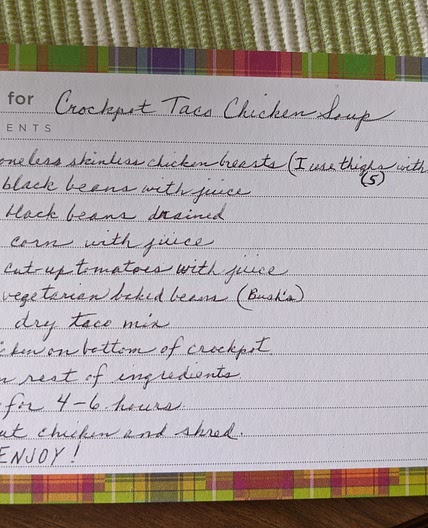 for Crockpot Taco Chicken Soup
ENTS
oneless skinless chicken breasts (I use thighs with
(5)
black beans with juice
black beans drained
corn with juice
cut-up tomatoes with juice
vegetarian baked beans (Bush's)
dry taco mix
cken on bottom of crockpot
rest of ingredients
for 4-6 hours.
ut chicken and shred.
ENJOY!